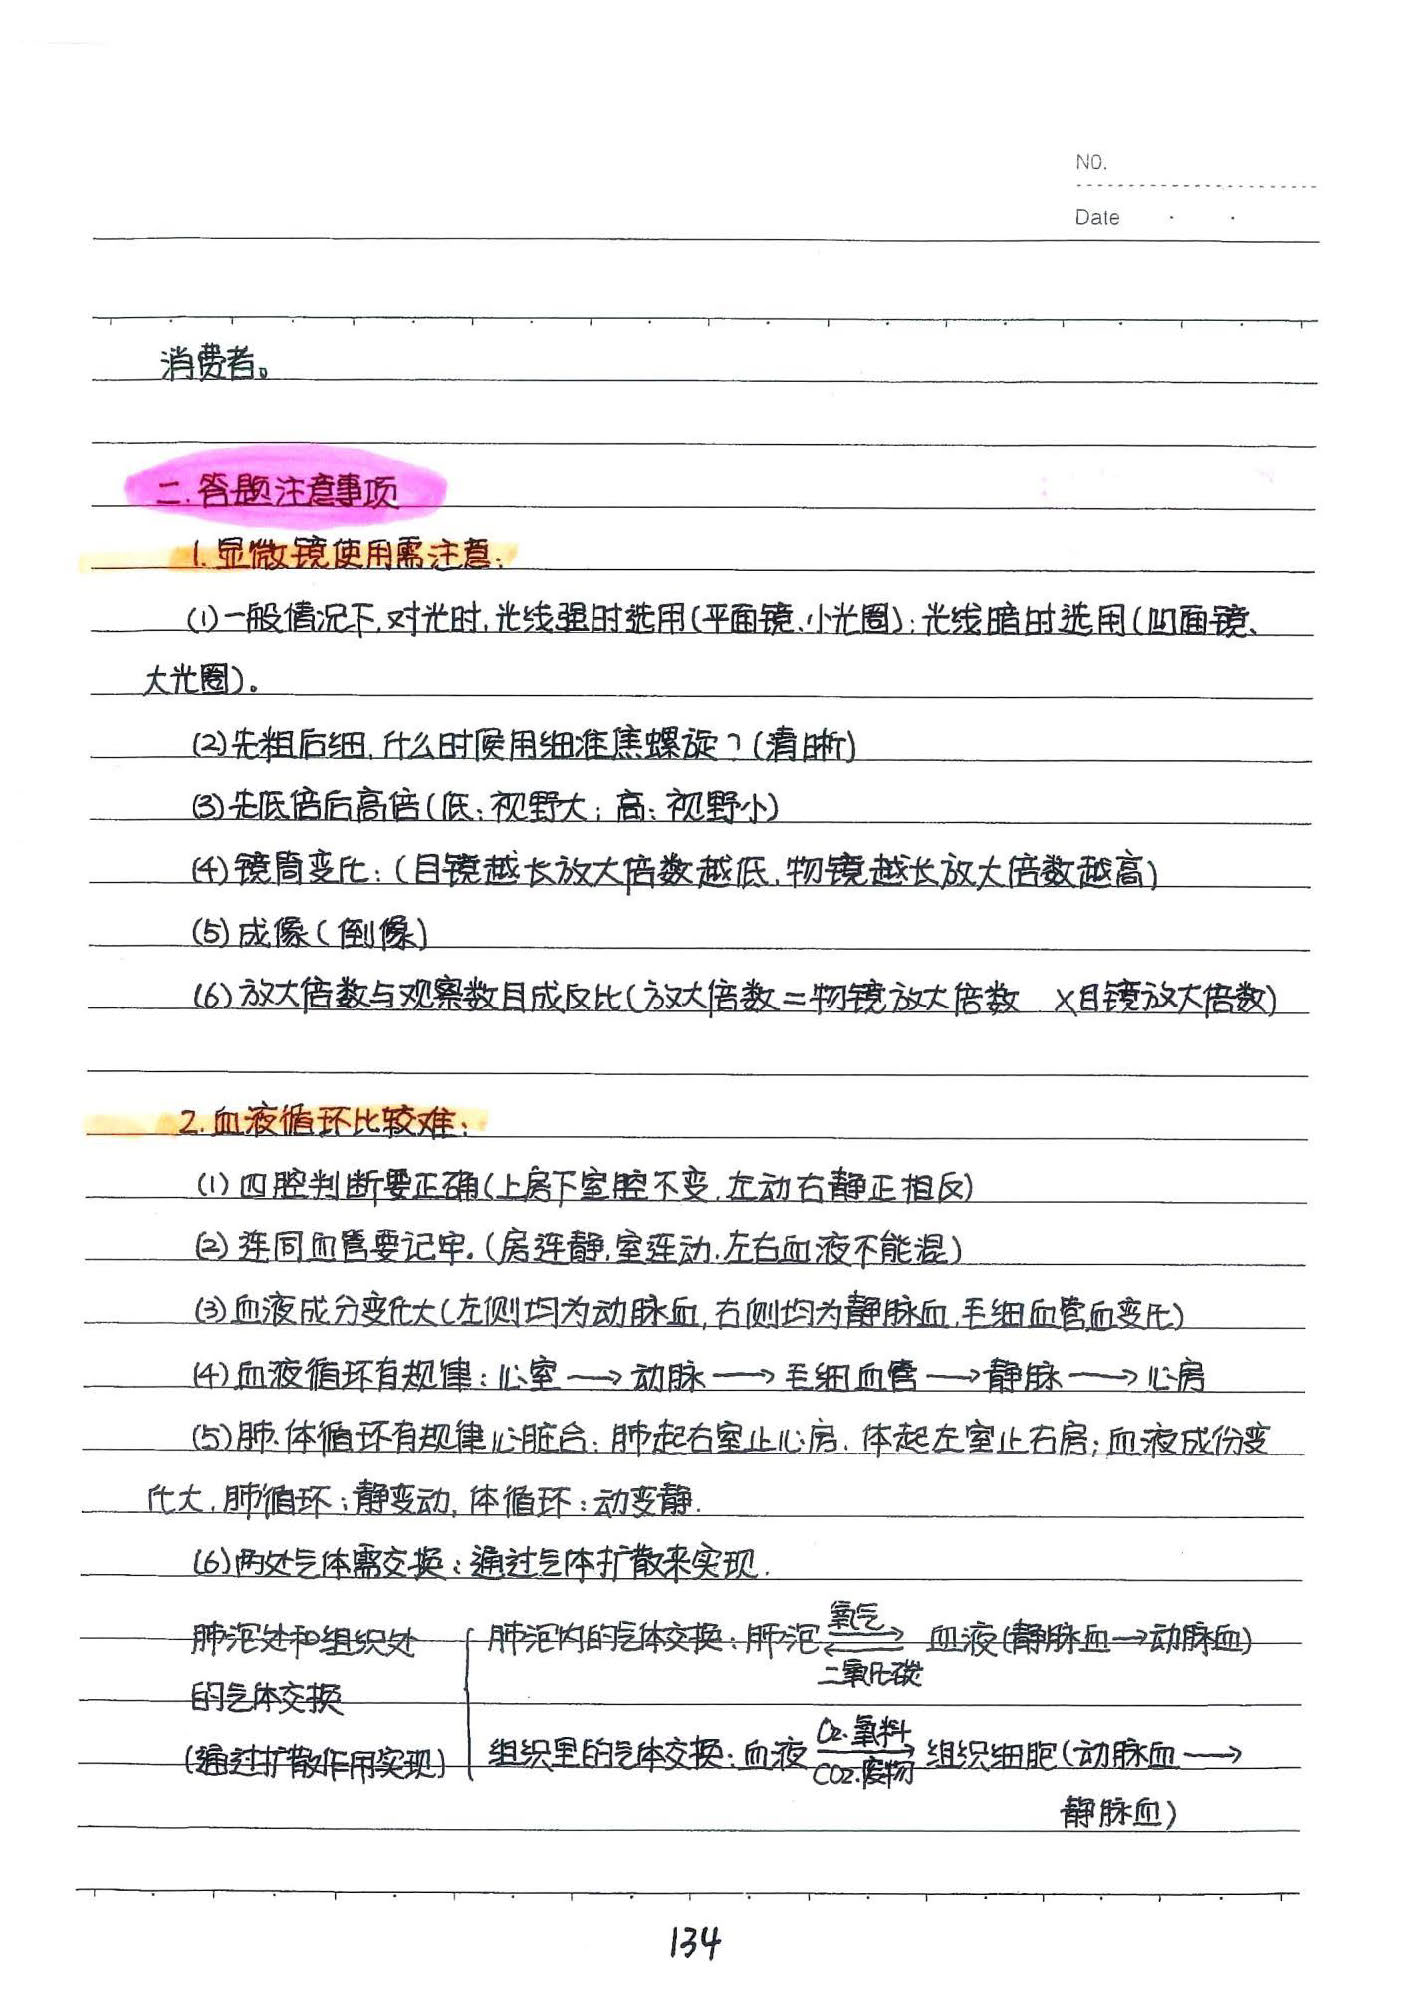 NO.
Date
消费者。
二.答题注意事项
1.显微镜使用需注意:
(1)一般情况下,对光时,光线强时选用(平面镜、小光圈);光线暗时选用(凹面镜、
大光圈)。
(2)先粗后细,什么时候用细准焦螺旋?(清晰)
(3)先低倍后高倍(低:视野大;高:视野小)
(4)镜筒变化:(目镜越长放大倍数越低,物镜越长放大倍数越高)
(5)成像(倒像)
(6)放大倍数与观察数目成反比(放大倍数=物镜放大倍数 ×目镜放大倍数)
2.血液循环比较难:
(1)四腔判断要正确(上房下室腔不变,左动右静正相反)
(2)连同血管要记牢。(房连静,室连动,左右血液不能混)
(3)血液成分变化大(左侧均为动脉血,右侧均为静脉血,毛细血管血变化)
(4)血液循环有规律:心室→动脉→毛细血管→静脉→心房
(5)肺、体循环有规律心脏合:肺起右室止心房,体起左室止右房;血液成份变
化大,肺循环:静变动,体循环:动变静.
(6)两处气体需交换:通过气体扩散来实现.
肺泡处和组织处
的气体交换
(通过扩散作用实现)
氧气
肺泡内的气体交换:肺泡⇌血液(静脉血→动脉血)
二氧化碳
O2.氧料
组织里的气体交换:血液⇌组织细胞(动脉血→
CO2.废物
静脉血)
134